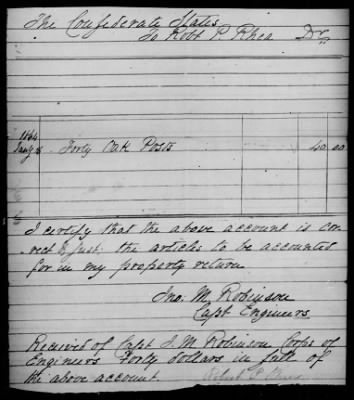 The Confederate States
To Robt P. Rhea Dr
1864
Jany Forty Oak Posts 40 00
I certify that the above account is cor-
rect & just; the articles to be accounted
for in my property return
Jno. M Robinson
Capt Engineers
Received of Capt J. M. Robinson Corps of
Engineers Forty dollars in full of
the above account.
Robert P. Rhea